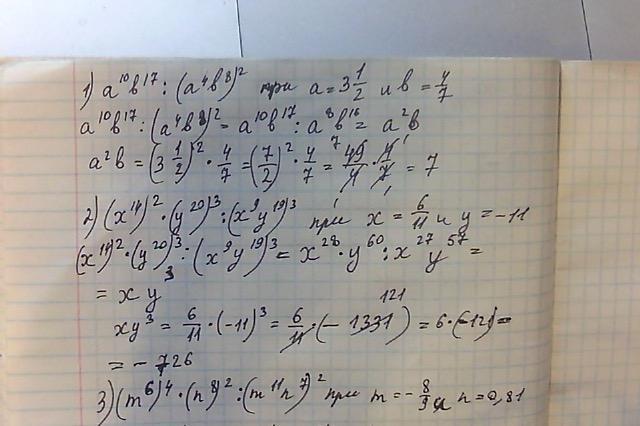 1) a¹⁰b¹⁷ : (a⁴b⁸)² при a = 3 1/2 и b = 4/7
a¹⁰b¹⁷ : (a⁴b⁸)² = a¹⁰b¹⁷ : a⁸b¹⁶ = a²b
a²b = (3 1/2)² · 4/7 = (7/2)² · 4/7 = 49/4 · 4/7 = 7
2) (x¹⁴)² · (y²⁰)³ : (x⁹y¹⁹)³ при x = 6/11 и y = -11
(x¹⁴)² · (y²⁰)³ : (x⁹y¹⁹)³ = x²⁸ · y⁶⁰ : x²⁷y⁵⁷ =
= xy³
xy³ = 6/11 · (-11)³ = 6/11 · (-1331) = 6 · (-121) =
= -726
3) (m⁶)⁴ · (n⁸)² : (m¹¹n⁷)² при m = -8/9 и n = 0,81